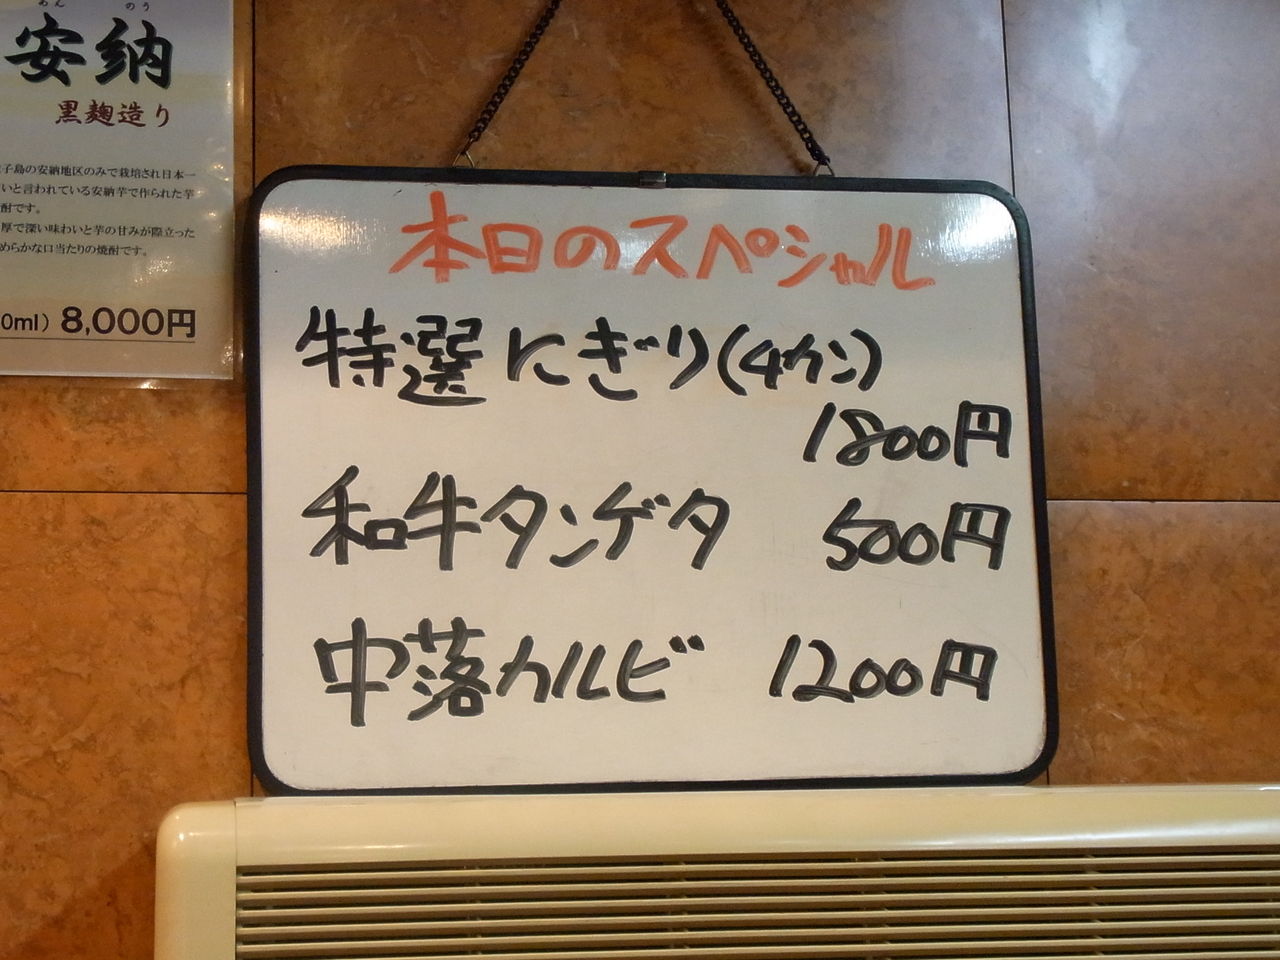 あん のう
安納
黒麹造り
子島の安納地区のみで栽培され日本一
いと言われている安納芋で作られた芋
酎です。
厚で深い味わいと芋の甘みが際立った
めらかな口当たりの焼酎です。
0ml) 8,000円
本日のスペシャル
特選にぎり(4カン)
1800円
和牛タンゲタ 500円
中落カルビ 1200円